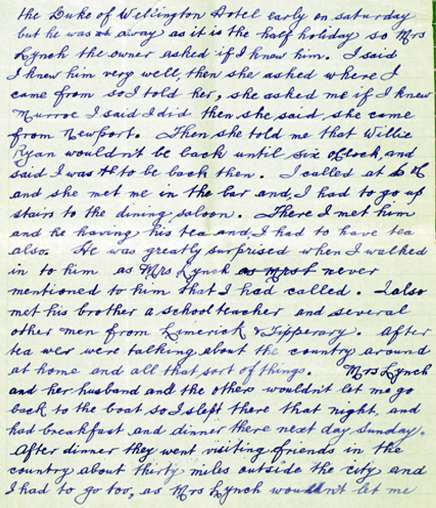 the Duke of Wellington Hotel early on saturday
but he was away as it is the half holiday so Mrs
Lynch the owner asked if I knew him. I said
I knew him very well, then she asked where I
came from so I told her, she asked me if I knew
Murroe I said I did then she said she came
from Newport. Then she told me that Willie
Ryan wouldn't be back until six O'Clock, and
said I was to be back then. I called at 6 OC
and she met me in the bar and, I had to go up
stairs to the dining saloon. There I met him
and he having his tea and, I had to have tea
also. He was greatly surprised when I walked
in to him as Mrs Lynch never
mentioned to him that I had called. I also
met his brother a schoolteacher and several
other men from Limerick & Tipperary. After
tea wer were talking about the country around
at home and all that sort of things. Mrs Lynch
and her husband and the others wouldn't let me go
back to the boat so I slept there that night, and
had breakfast and dinner there next day Sunday.
After dinner they went visiting friends in the
country about thirty miles outside the city and
I had to go too, as Mrs Lynch wouldn't let me